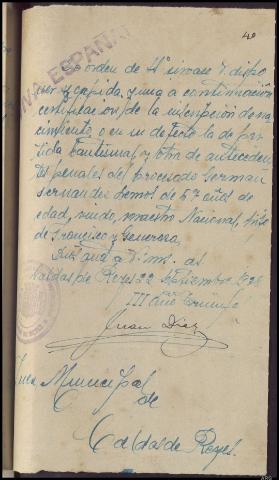 40
VIVA ESPAÑA
De orden de Sª sírvase dispo
ner y expida y una a continuación
certificación de la inscripción de na
cimiento, o en su defecto la de par
tida bautismal, y otra de anteceden
tes penales del procesado Germán
Fernandez de 57 años de
edad, viudo, maestro Nacional, hijo
de Francisco y Generosa.
Dios guarde a V. ms. as
Caldas de Reyes 22 Septiembre 1938
III Año Triunfal
Juan Diez
Juez Municipal
de
Caldas de Reyes.